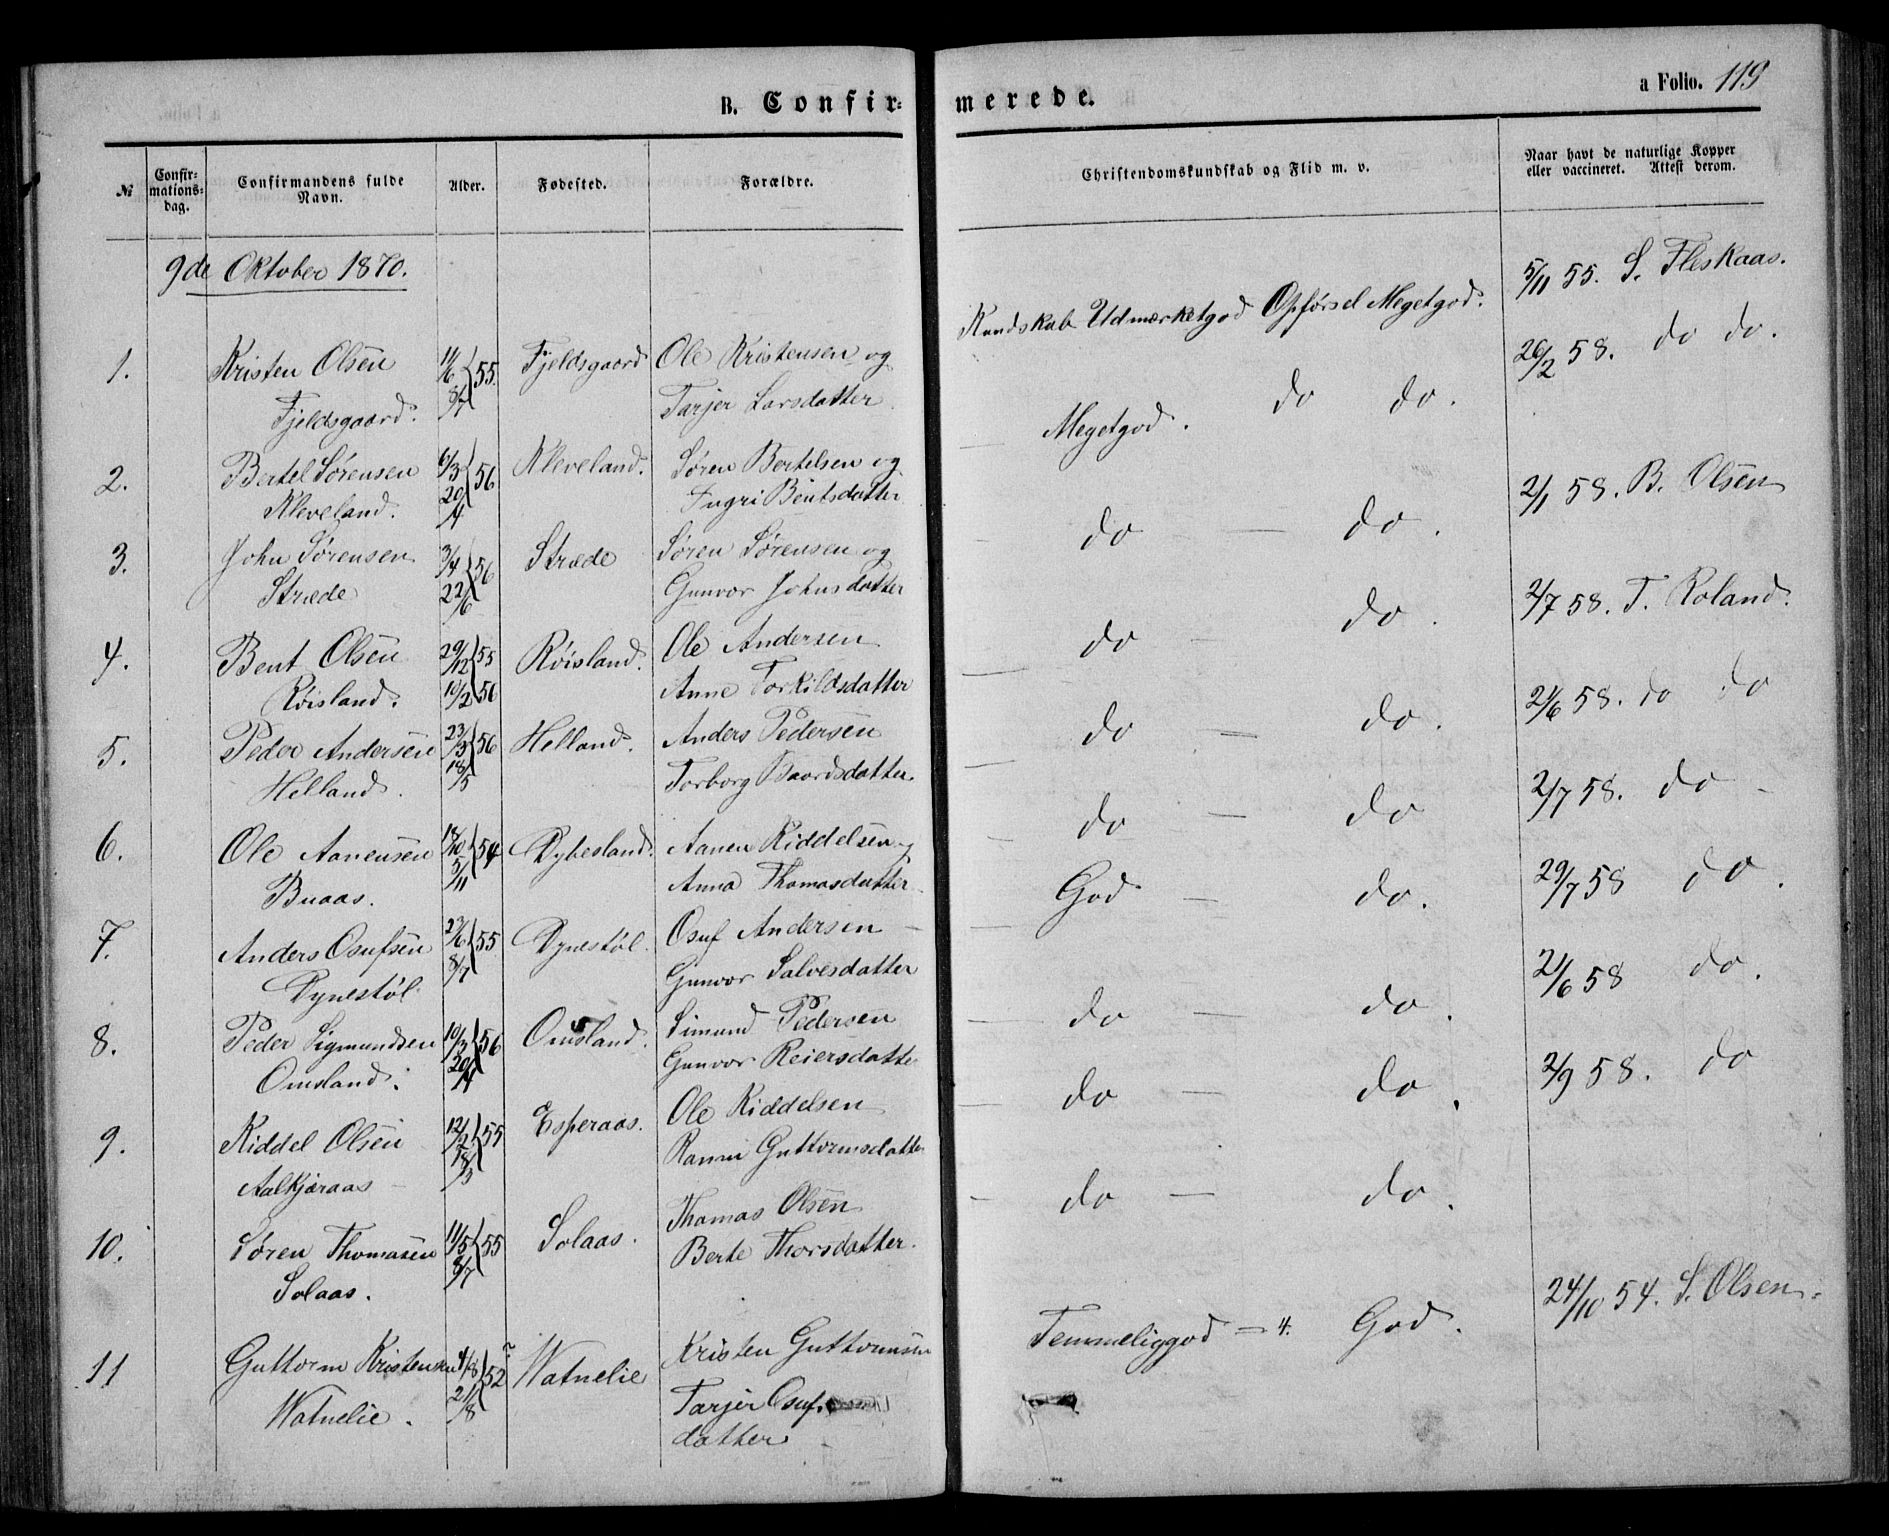 B. Confir=
№
Confir-
mations-
dag.
Confirmandens fulde
Navn.
Alder.
Fødested.
Forældre.
9de Oktober 1870.
1.
Kristen Olsen
Fjeldsgaard.
11/6
8/7
55.
Fjeldsgaard
Ole Kristensen og
Tarjer Larsdatter
2.
Bertel Sørensen
Kleveland.
6/3
20/4
56
Kleveland.
Søren Bertelsen og
Ingri Bentsdatter
3.
John Sørensen
Stræde
3/4
22/6
56
Stræde
Søren Sørensen og
Gunvor Johnsdatter
4.
Bent Olsen
Røisland.
29/12 55
10/2 56
Røisland.
Ole Andersen
Anne Torkildsdatter
5.
Peder Andersen
Helland.
23/3
18/5
56
Helland.
Anders Pedersen
Torborg Baardsdatter.
6.
Ole Aanensen
Buaas.
18/10
5/11
54
Dybesland.
Aanen Kiddelsen og
Anna Thomasdatter
7.
Anders Osufsen
Dynestøl
23/6
8/7
55
Dynestøl.
Osuf Andersen
Gunvor Salvesdatter
8.
Peder Sigmundsen
Omsland.
10/3
20/4
56
Omsland.
Simund Pedersen
Gunvor Reiersdatte
9.
Kiddel Olsen
Aalkjæraas
12/2
18/3
55
Esperaas.
Ole Kiddelsen
Ranni Guttormsdatter
10.
Søren Thomasen
Solaas.
11/5
8/7
55
Solaas.
Thomas Olsen
Berte Thorsdatter.
11
Guttorm Kristensen
Watnelie.
4/8
21/8
52
Watnelie
Kristen Guttormsen
Tarjer Osuf.
datter
merede.
a Folio. 119
Christendomskundskab og Flid m. v.
Naar havt de naturlige Kopper
eller vaccineret. Attest derom.
Kundskab Udmærketgod Opførsel Megetgod.
5/11 55. S. Fleskaas.
Megetgod. do do.
26/2 58. do do.
do — do.
2/1 58. B. Olsen
do — do.
2/7 58. T. Roland.
do — do.
21/6 58. do do
do — do
2/7 58. do —
God — do.
29/7 58 do.
do — do.
21/6 58 do.
do — do.
2/9 58. do
do — do.
Temmeliggod = 4. God.
24/10 54. S. Olsen.